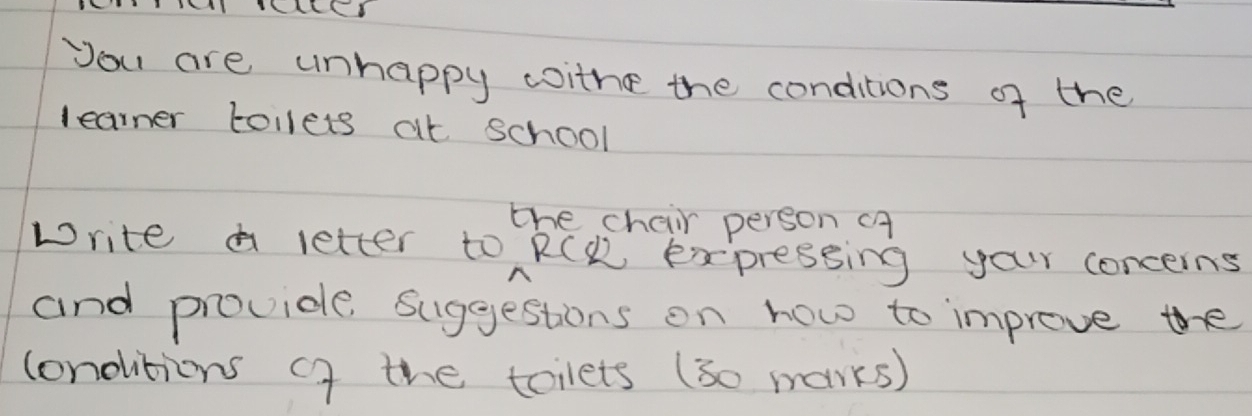 letter
You are unhappy withe the conditions of the
learner toilets at school
the chair person of
Write a letter to ^ RCL expressing your concerns
and provide suggestions on how to improve the
conditions of the toilets (30 marks)